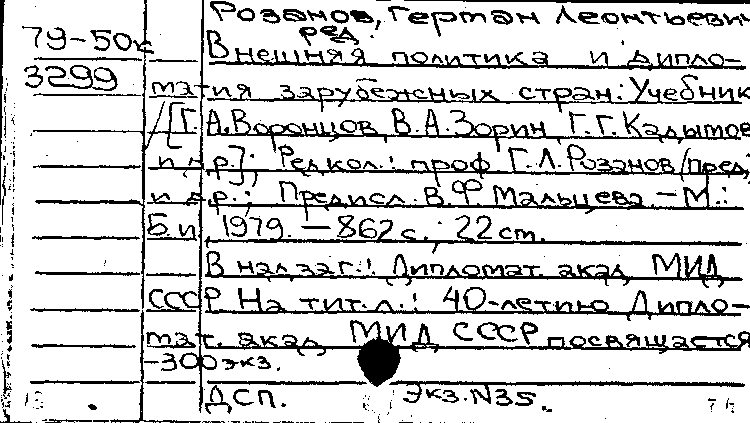 Розанов, Герман Леонтьевич
ред.
79-50к Внешняя политика и дипло-
3299 матия зарубежных стран: Учебник
/[Г.А.Воронцов, В.А.Зорин, Г.Г.Кадымов
и др.]; Редкол.: проф Г.Л.Розанов (пред.)
и др.; Предисл. В.Ф.Мальцева. – М.:
Б.и, 1979. – 862 с.; 22 cm.
В надзаг.: Дипломат. акад МИД
СССР На тит.л.: 40-летию Дипло-
мат. акад МИД СССР посвящается
-300 экз.
ДСП. Экз.N35.